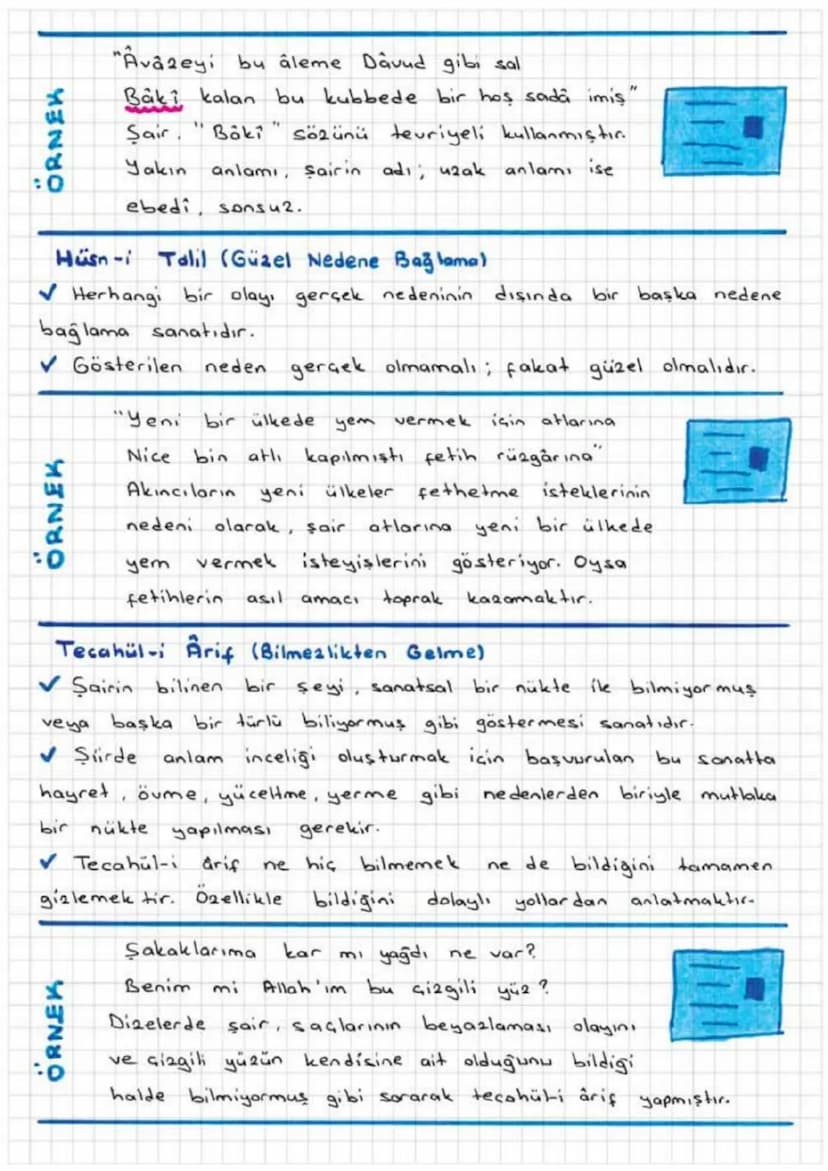 ÖRNEK
"Âvâzeyi bu âleme Dâvud gibi sal
Bâkî kalan bu kubbede bir hoş sadâ imiş"
Şair, "Bâkî" sözünü tevriyeli kullanmıştır.
Yakın anlamı, şairin adı; uzak anlamı ise
ebedî, sonsuz.
Hüsn-i Talil (Güzel Nedene Bağlama)
✓ Herhangi bir olayı gerçek nedeninin dışında bir başka nedene
bağlama sanatıdır.
✓ Gösterilen neden gerçek olmamalı; fakat güzel olmalıdır.
ÖRNEK
"Yeni bir ülkede yem vermek için atlarına
Nice bin atlı kapılmıştı fetih rüzgârına"
Akıncıların yeni ülkeler fethetme isteklerinin
nedeni olarak, şair atlarına yeni bir ülkede
yem vermek isteyişlerini gösteriyor. Oysa
fetihlerin asıl amacı toprak kazamaktır.
Tecahül-i Ârif (Bilmezlikten Gelme)
✓ Şairin bilinen bir şeyi, sanatsal bir nükte ile bilmiyormuş
veya başka bir türlü biliyormuş gibi göstermesi sanatıdır.
✓ Şiirde anlam inceliği oluşturmak için başvurulan bu sanatta
hayret, övme, yüceltme, yerme gibi nedenlerden biriyle mutlaka
bir nükte yapılması gerekir.
✓ Tecahül-i ârif ne hiç bilmemek ne de bildiğini tamamen
gizlemektir. Özellikle bildiğini dolaylı yollardan anlatmaktır.
ÖRNEK
Şakaklarıma kar mı yağdı ne var?
Benim mi Allah'ım bu çizgili yüz?
Dizelerde şair, saçlarının beyazlaması olayını
ve çizgili yüzün kendisine ait olduğunu bildiği
halde bilmiyormuş gibi sorarak tecahül-i ârif yapmıştır.